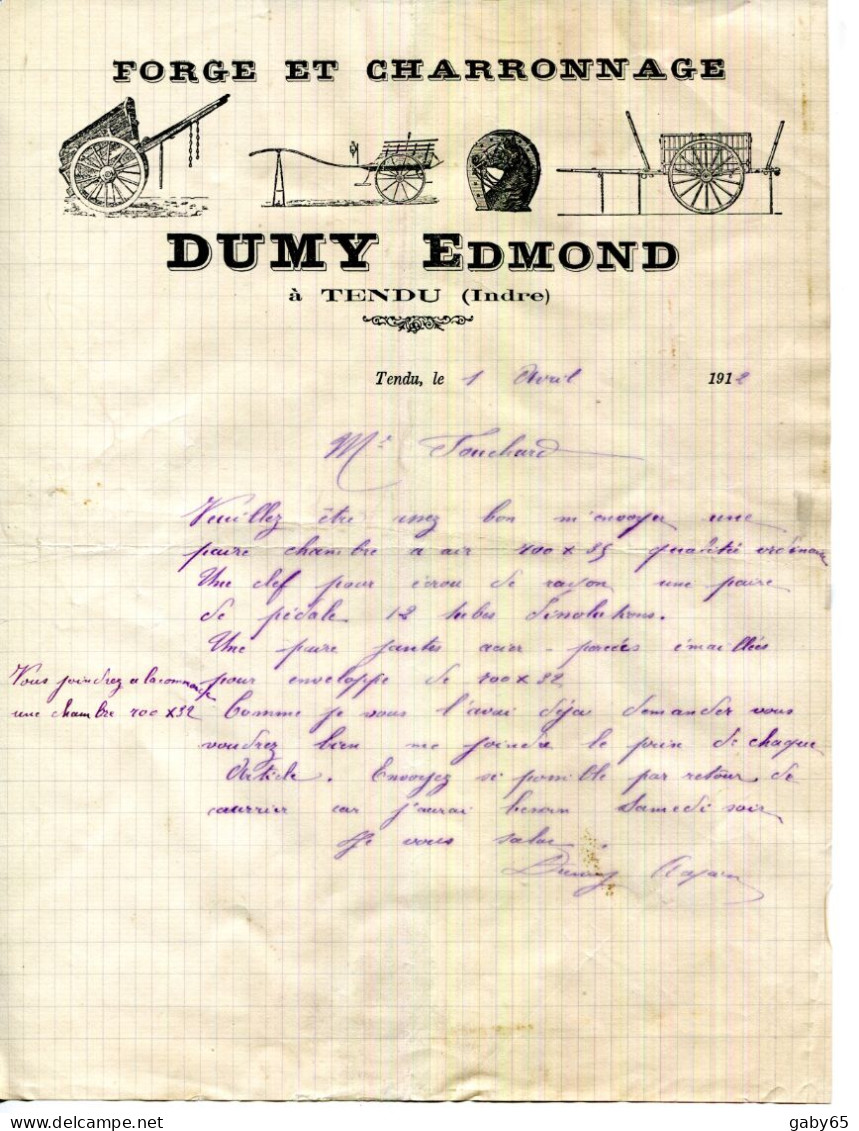 FORGE ET CHARRONNAGE
DUMY EDMOND
à TENDU (Indre)
Tendu, le 1 Avril 1912
Mr Touchard
Veuillez être assez bon m'envoyer une
paire chambre a air 700 x 35 qualité ordinaire
Une clef pour écrou de rayon une paire
de pédale 12 tubes dissolutions.
Une paire jantes acier percées émaillées
pour enveloppe de 700 x 32
Vous joindrez a la commande
une chambre 700 x 32
Comme je vous l'avai déja demander vous
voudrez bien me joindre le prix de chaque
Article. Envoyez si possible par retour de
courrier car j'aurai besoin Samedi soir
Je vous salue.
Dumy
delcampe.net
gaby65